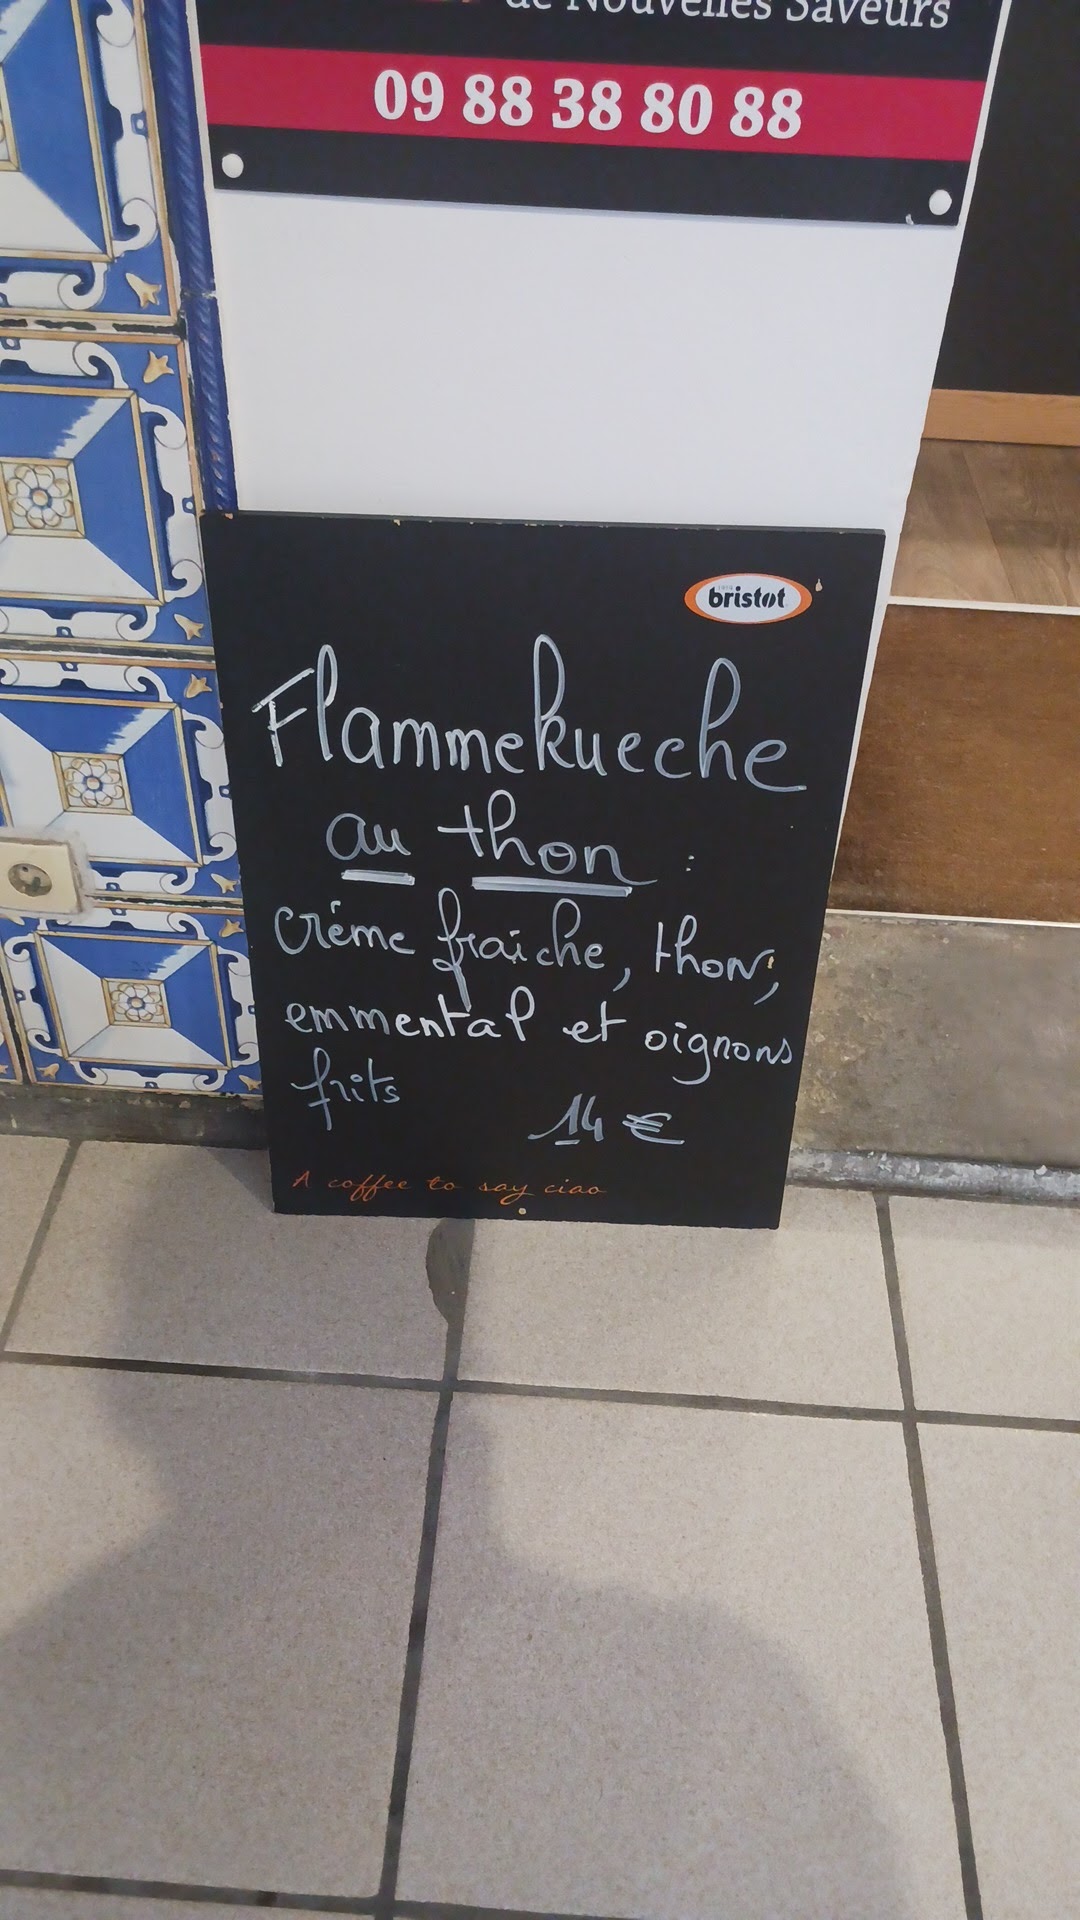 de Nouvelles Saveurs
09 88 38 80 88
bristot
Flammekueche
au thon :
crème fraîche, thon,
emmental et oignons
frits
14 €
A coffee to say ciao